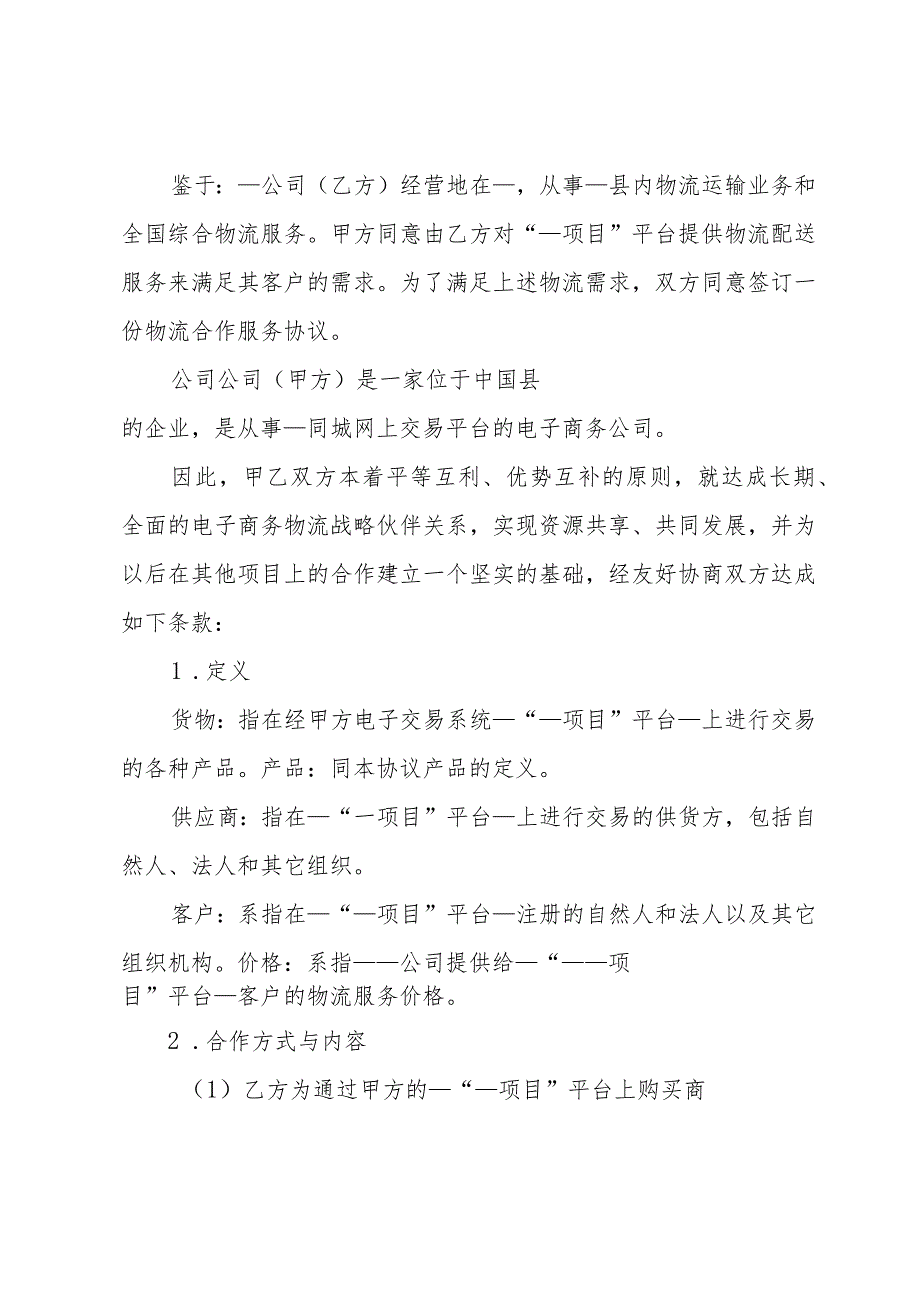 鉴于：—公司（乙方）经营地在—，从事—县内物流运输业务和
全国综合物流服务。甲方同意由乙方对“—项目”平台提供物流配送
服务来满足其客户的需求。为了满足上述物流需求，双方同意签订一
份物流合作服务协议。
公司公司（甲方）是一家位于中国县
的企业，是从事—同城网上交易平台的电子商务公司。
因此，甲乙双方本着平等互利、优势互补的原则，就达成长期、
全面的电子商务物流战略伙伴关系，实现资源共享、共同发展，并为
以后在其他项目上的合作建立一个坚实的基础，经友好协商双方达成
如下条款：
1 .定义
货物：指在经甲方电子交易系统—“—项目”平台—上进行交易
的各种产品。产品：同本协议产品的定义。
供应商：指在—“一项目”平台—上进行交易的供货方，包括自
然人、法人和其它组织。
客户：系指在—“—项目”平台—注册的自然人和法人以及其它
组织机构。价格：系指——公司提供给—“——项
目”平台—客户的物流服务价格。
2 .合作方式与内容
（1）乙方为通过甲方的—“—项目”平台上购买商